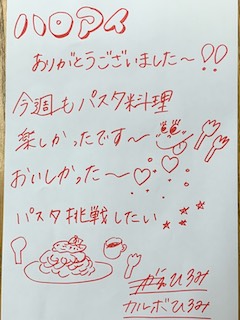 ハロアイ
ありがとうございました〜!!
今週もパスタ料理
楽しかったです〜
おいしかった〜
パスタ挑戦したい
ひろみ
カルボひろみ